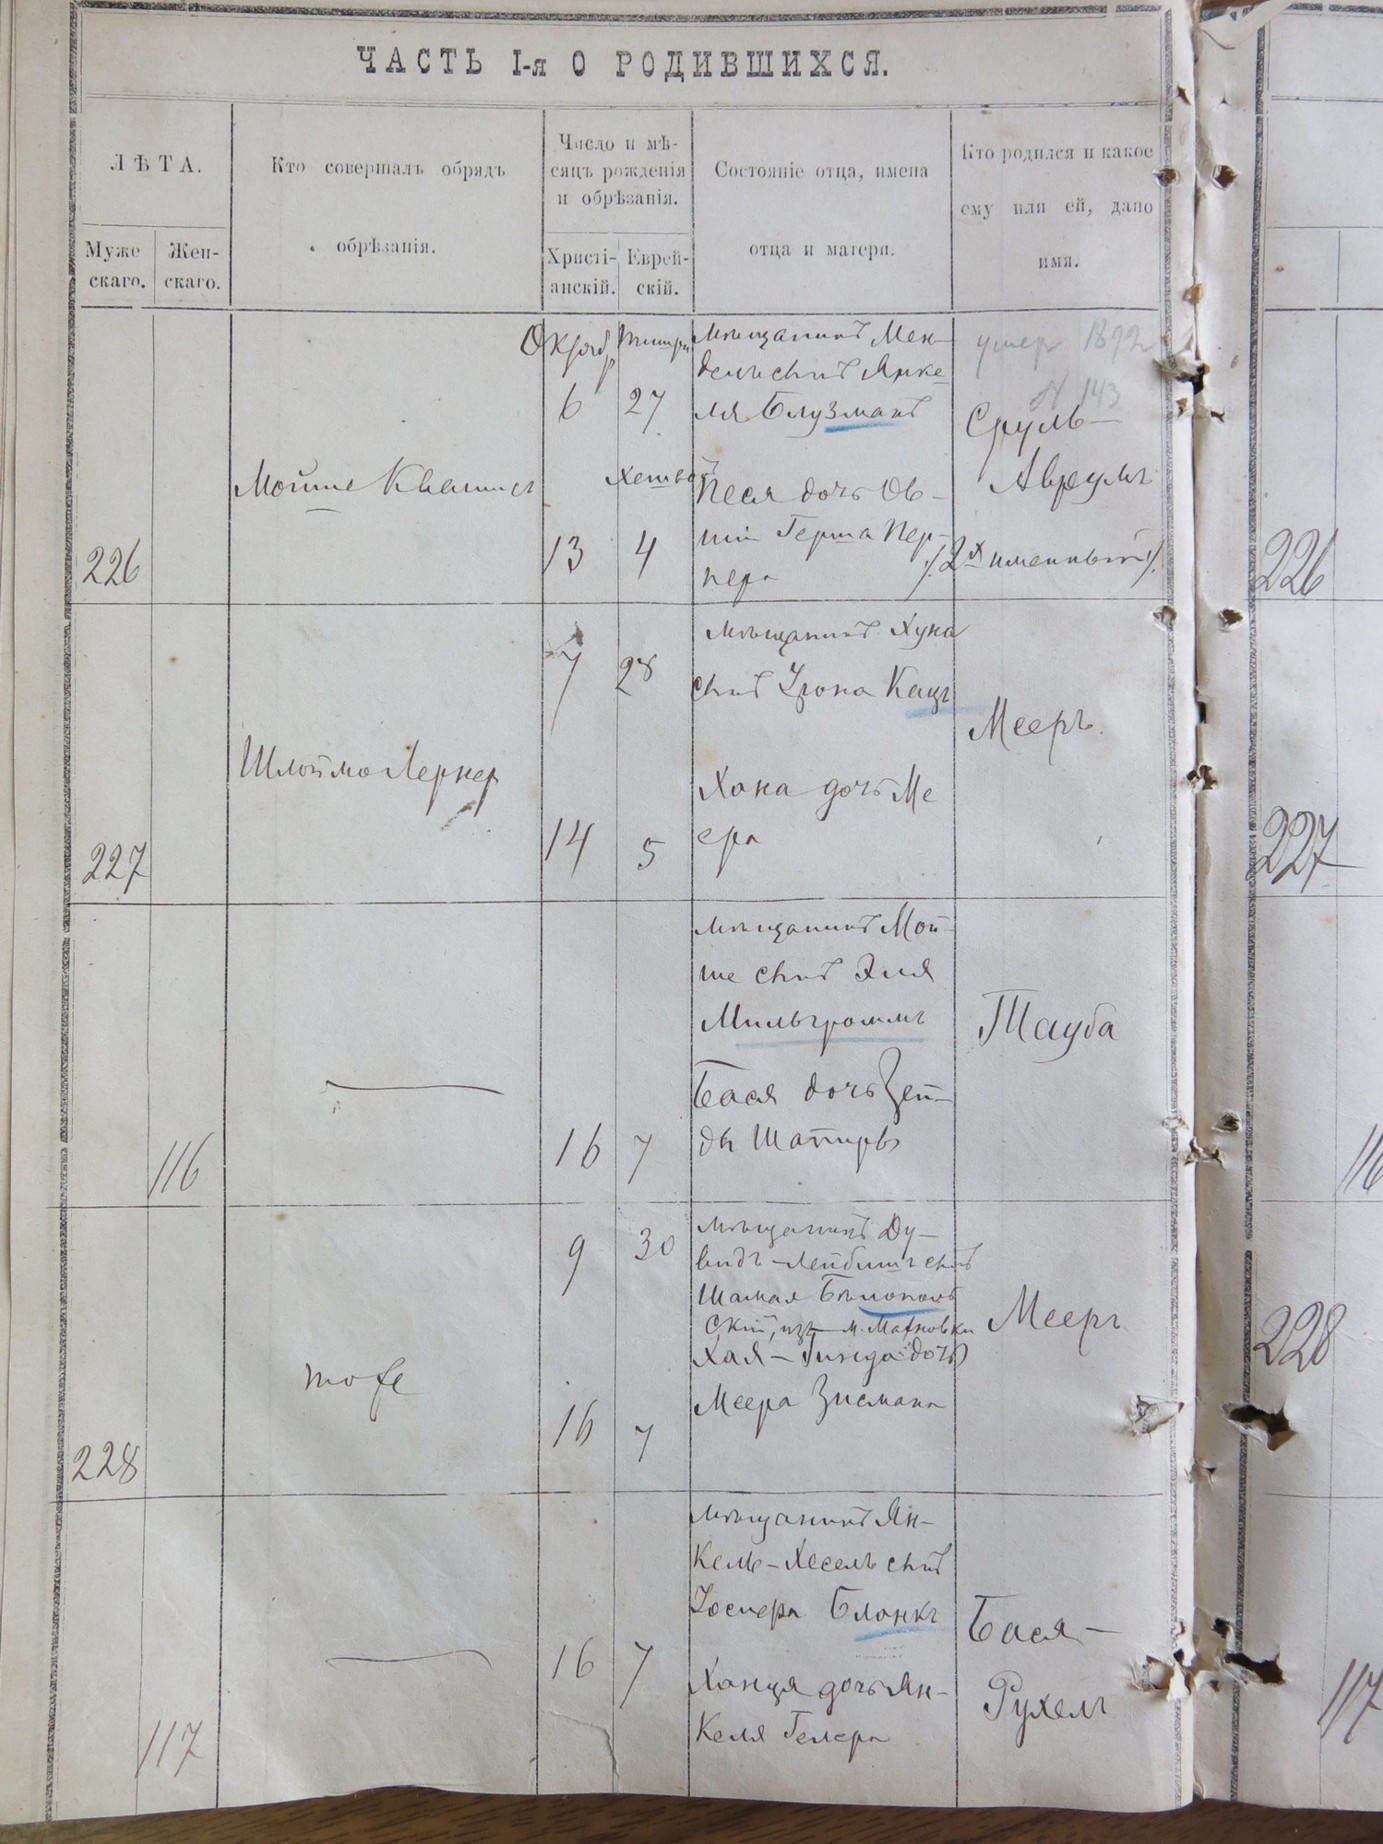 ЧАСТЬ I-я О РОДИВШИХСЯ.
ЛѢТА.
Муже
скаго.
Жен-
скаго.
Кто совершалъ обрядъ
обрѣзанія.
Число и мѣ-
сяцъ рожденія
и обрѣзанія.
Христі-
анскій.
Еврей-
скій.
Состояніе отца, имена
отца и матери.
Кто родился и какое
ему или ей, дано
имя.
226
Мойше
Октяб
6
13
Тишри
27
4
мѣщанинъ Мен-
дель сынъ Янке-
ля Блузманъ
Песя дочь Ов-
шія Герша Пер-
пера
умер 1892
№ 143
Сруль-
Авремъ
/2х именный/.
226
227
Шлойма Лернер
7
14
28
5
мѣщанинъ Хуна
сынъ Іона Кацъ
Хона дочь Ме
ера
Мееръ.
227
116
16
7
мѣщанинъ Мой-
ше сынъ Эля
Мильгромъ
Бася дочь Зей-
ды Шапиры
Тауба
116
228
тоже
9
16
30
7
мѣщанинъ Ду-
видъ-Лейбишъ сынъ
Шамая Бѣлополь
скій, изъ м. Махновки
Хая-Гинда дочь
Меера Зисмана
Мееръ
228
117
16
7
мѣщанинъ Ян-
кель-Хесель сынъ
Іосифа Бланкъ
Ханця дочь Ян-
келя Гелера
Бася-
Рухель
117